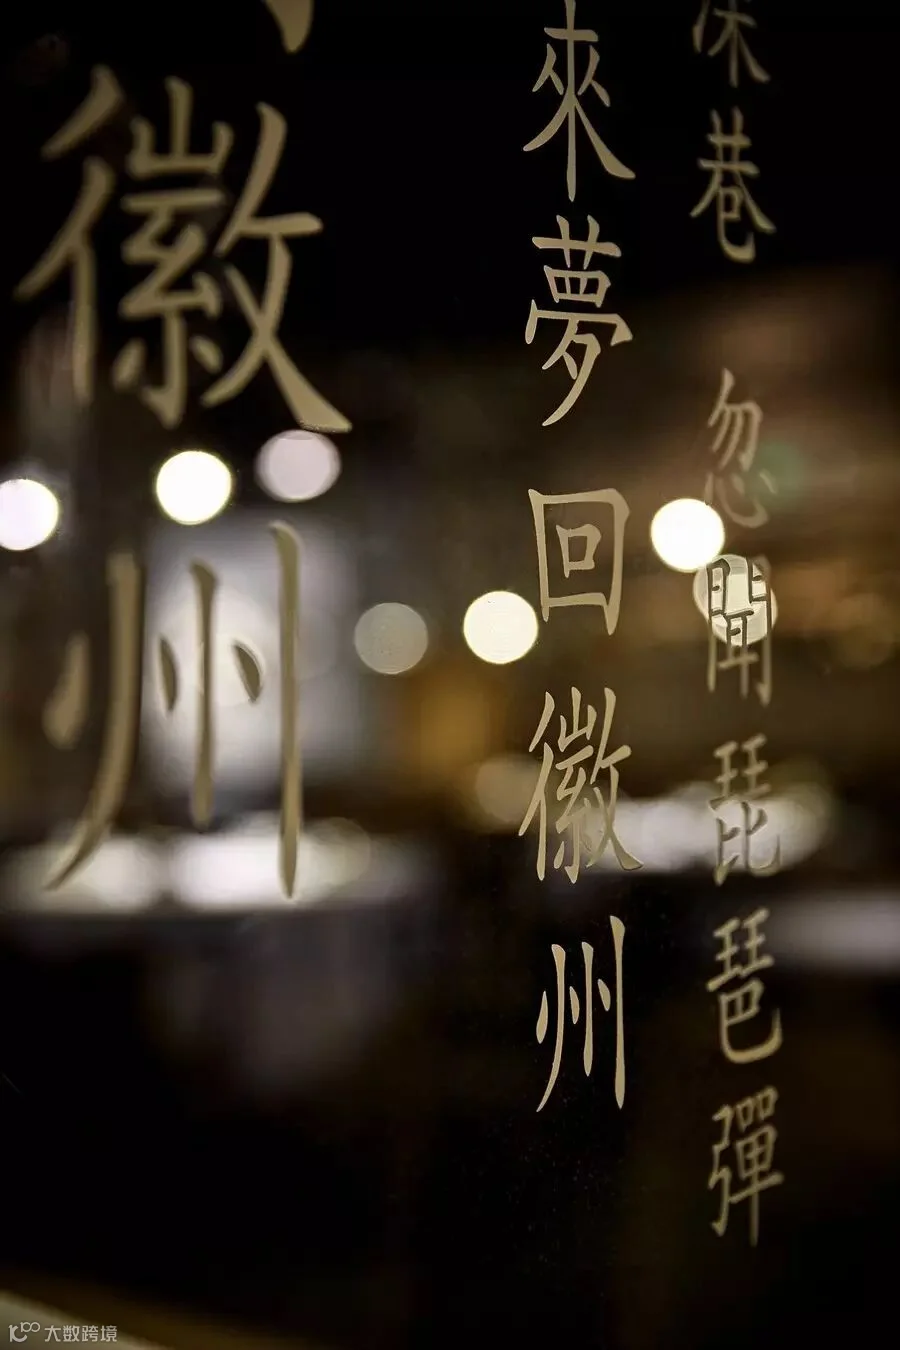 深巷 忽聞琵琶彈
來夢回徽州
徽州
大数跨境